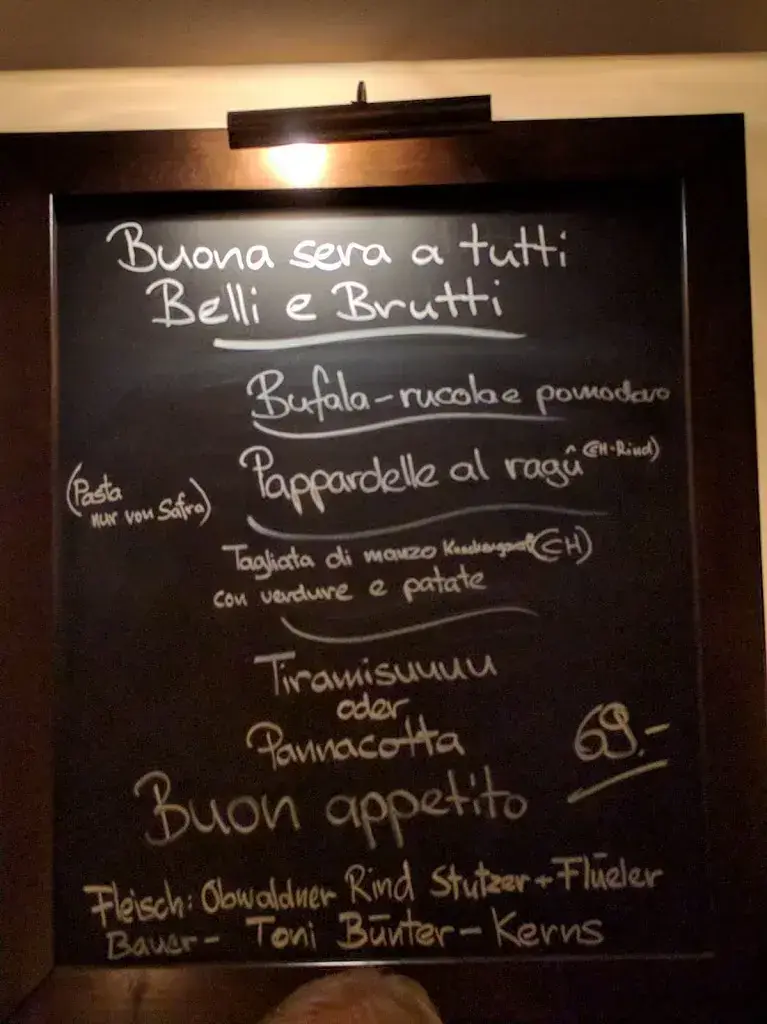 Buona sera a tutti
Belli e Brutti
Bufala-rucola e pomodoro
Pappardelle al ragû (CH-Rind)
(Pasta
nur von Safra)
Tagliata di manzo (CH)
con verdure e patate
Tiramisuuuu
oder
Pannacotta
69.-
Buon appetito
Fleisch: Obwaldner Rind Stutzer + Flüeler
Bauer- Toni Bünter - Kerns